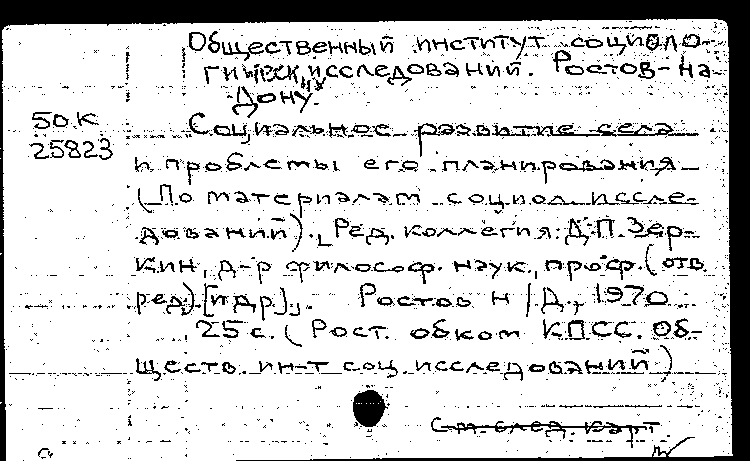 Общественный институт социоло-
гическ их исследований. Ростов-на-
Дону.
50 К
25823
Социальное развитие села
и проблемы его планирования
(По материалам социол. иссле-
дований). Ред. коллегия: Д.П. Зер-
кин, д-р философ. наук, проф. (отв.
ред.) [и др.]. Ростов н/Д., 1970
25 с. (Рост. обком КПСС. Об-
ществ. ин-т соц. исследований)
См. след. карт.